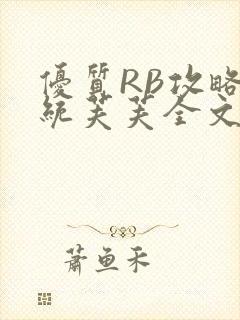 優質RB攻略
統芙芙全文
蕭魚禾